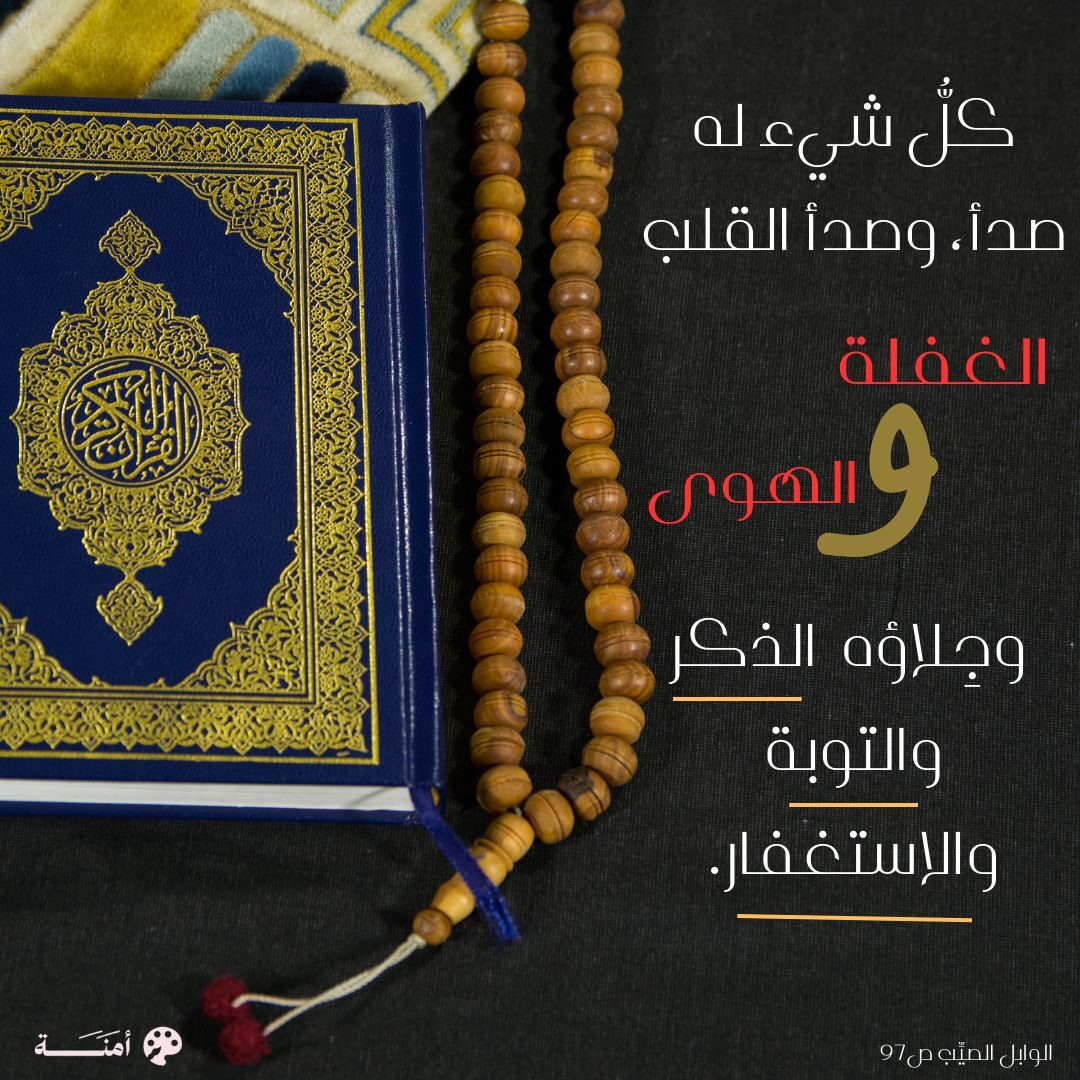 كلُّ شيء له
صدأ، وصدأ القلب
الغفلة
و
الهوى
وجِلاؤه الذكر
والتوبة
والاستغفار.
القرآن الكريم
الوابل الصيِّب ص97
أمنَــة